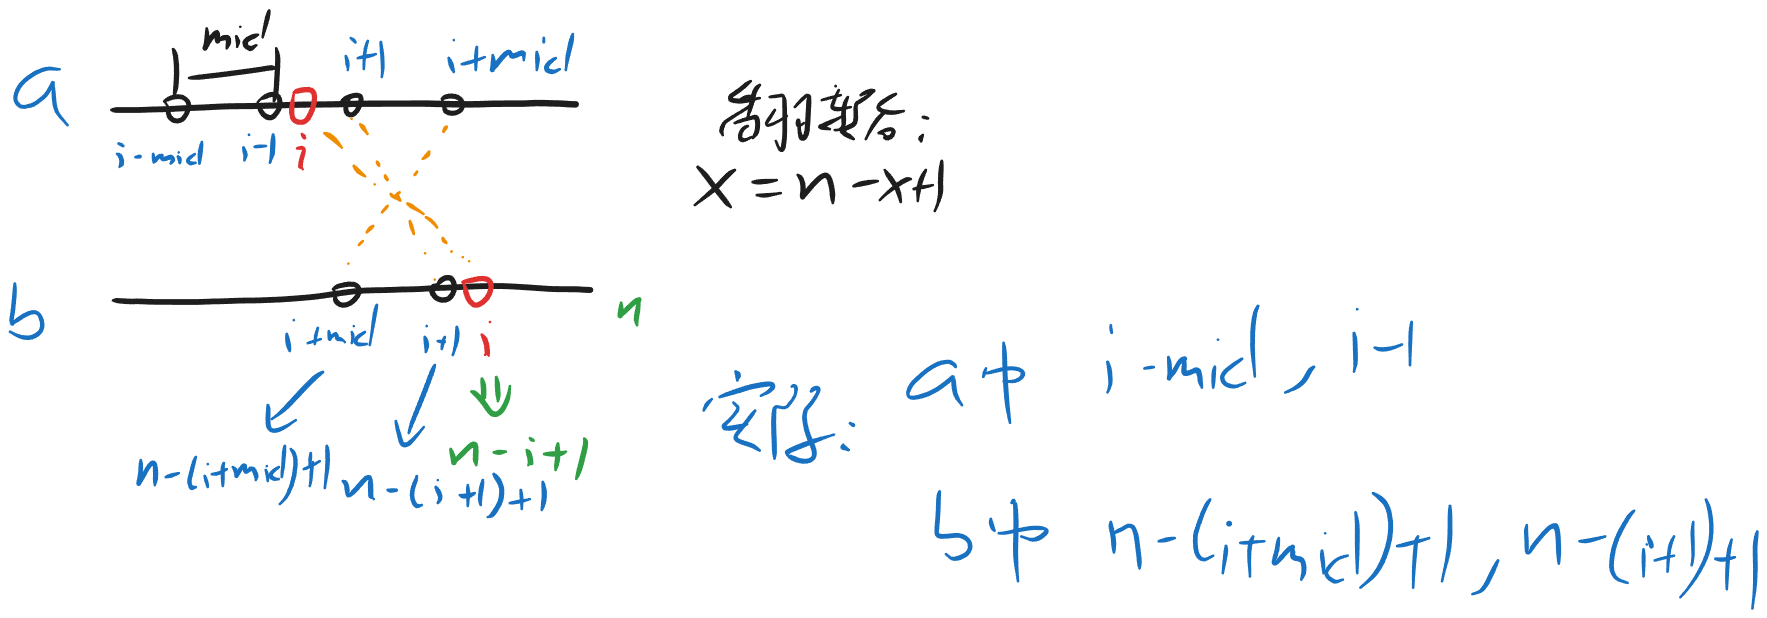 mid
i+1
i+mid
a
i-mid
i-1
i
翻转后:
x=n-x+1
b
n
i+mid
i+1
i
n-i+1
n-(i+mid)+1
n-(i+1)+1
实际: a中 i-mid, i-1
b中 n-(i+mid)+1, n-(i+1)+1